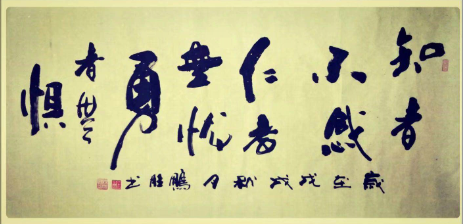 知者
不惑
仁者
無忧
勇
者無
惧
歲在戊戌秋月鵬胜书